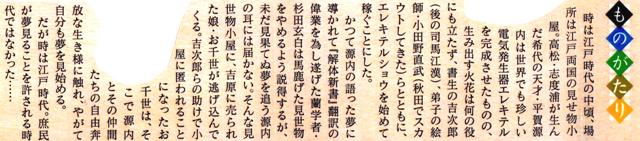 ものがたり
時は江戸時代の中頃、場
所は江戸両国の見せ物小
屋。高松・志度浦が生ん
だ希代の天才・平賀源
内は世界でも珍しい
電気発生器エレキテル
を完成させたものの、
生み出す火花は何の役
にも立たず、書生の吉次郎
（後の司馬江漢）、弟子の絵
師・小田野直武（秋田でスカ
ウトしてきた）らとともに、
エレキテルショウを始めて
稼ぐことにした。
かつて源内の語った夢に
導かれて『解体新書』翻訳の
偉業を為し遂げた蘭学者・
杉田玄白は馬鹿げた見世物
をやめるよう説得するが、
未だ見果てぬ夢を追う源内
の耳には届かない。そんな見
世物小屋に、吉原に売られ
た娘・お千世が逃げ込んで
くる。吉次郎らの助けで小
屋に匿われること
になったお
千世は、そ
こで源内
とその仲間
たちの自由奔
放な生き様に触れ、やがて
自分も夢を見始める。
だが時は江戸時代。庶民
が夢見ることを許される時
代ではなかった……